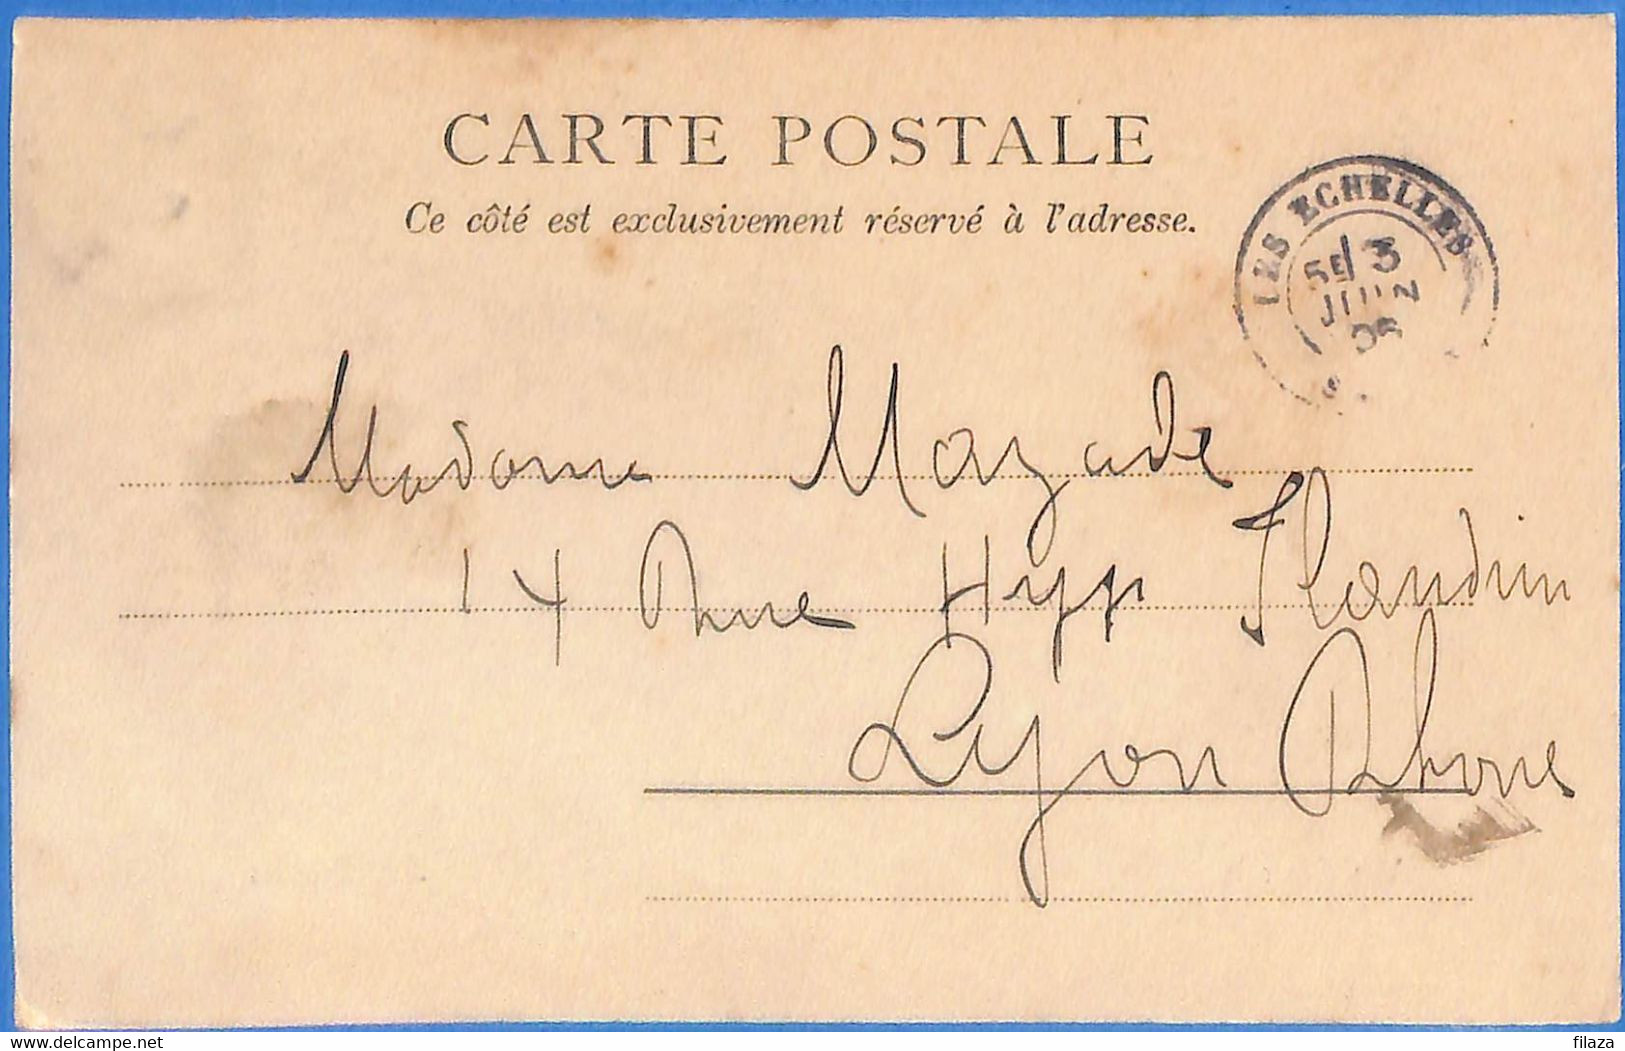 CARTE POSTALE
Ce côté est exclusivement réservé à l'adresse.
LES ECHELLES
5E 3
JUIN
Madame Mazade
14 Rue Hypp Flandrin
Lyon Rhone
delcampe.net
filaza